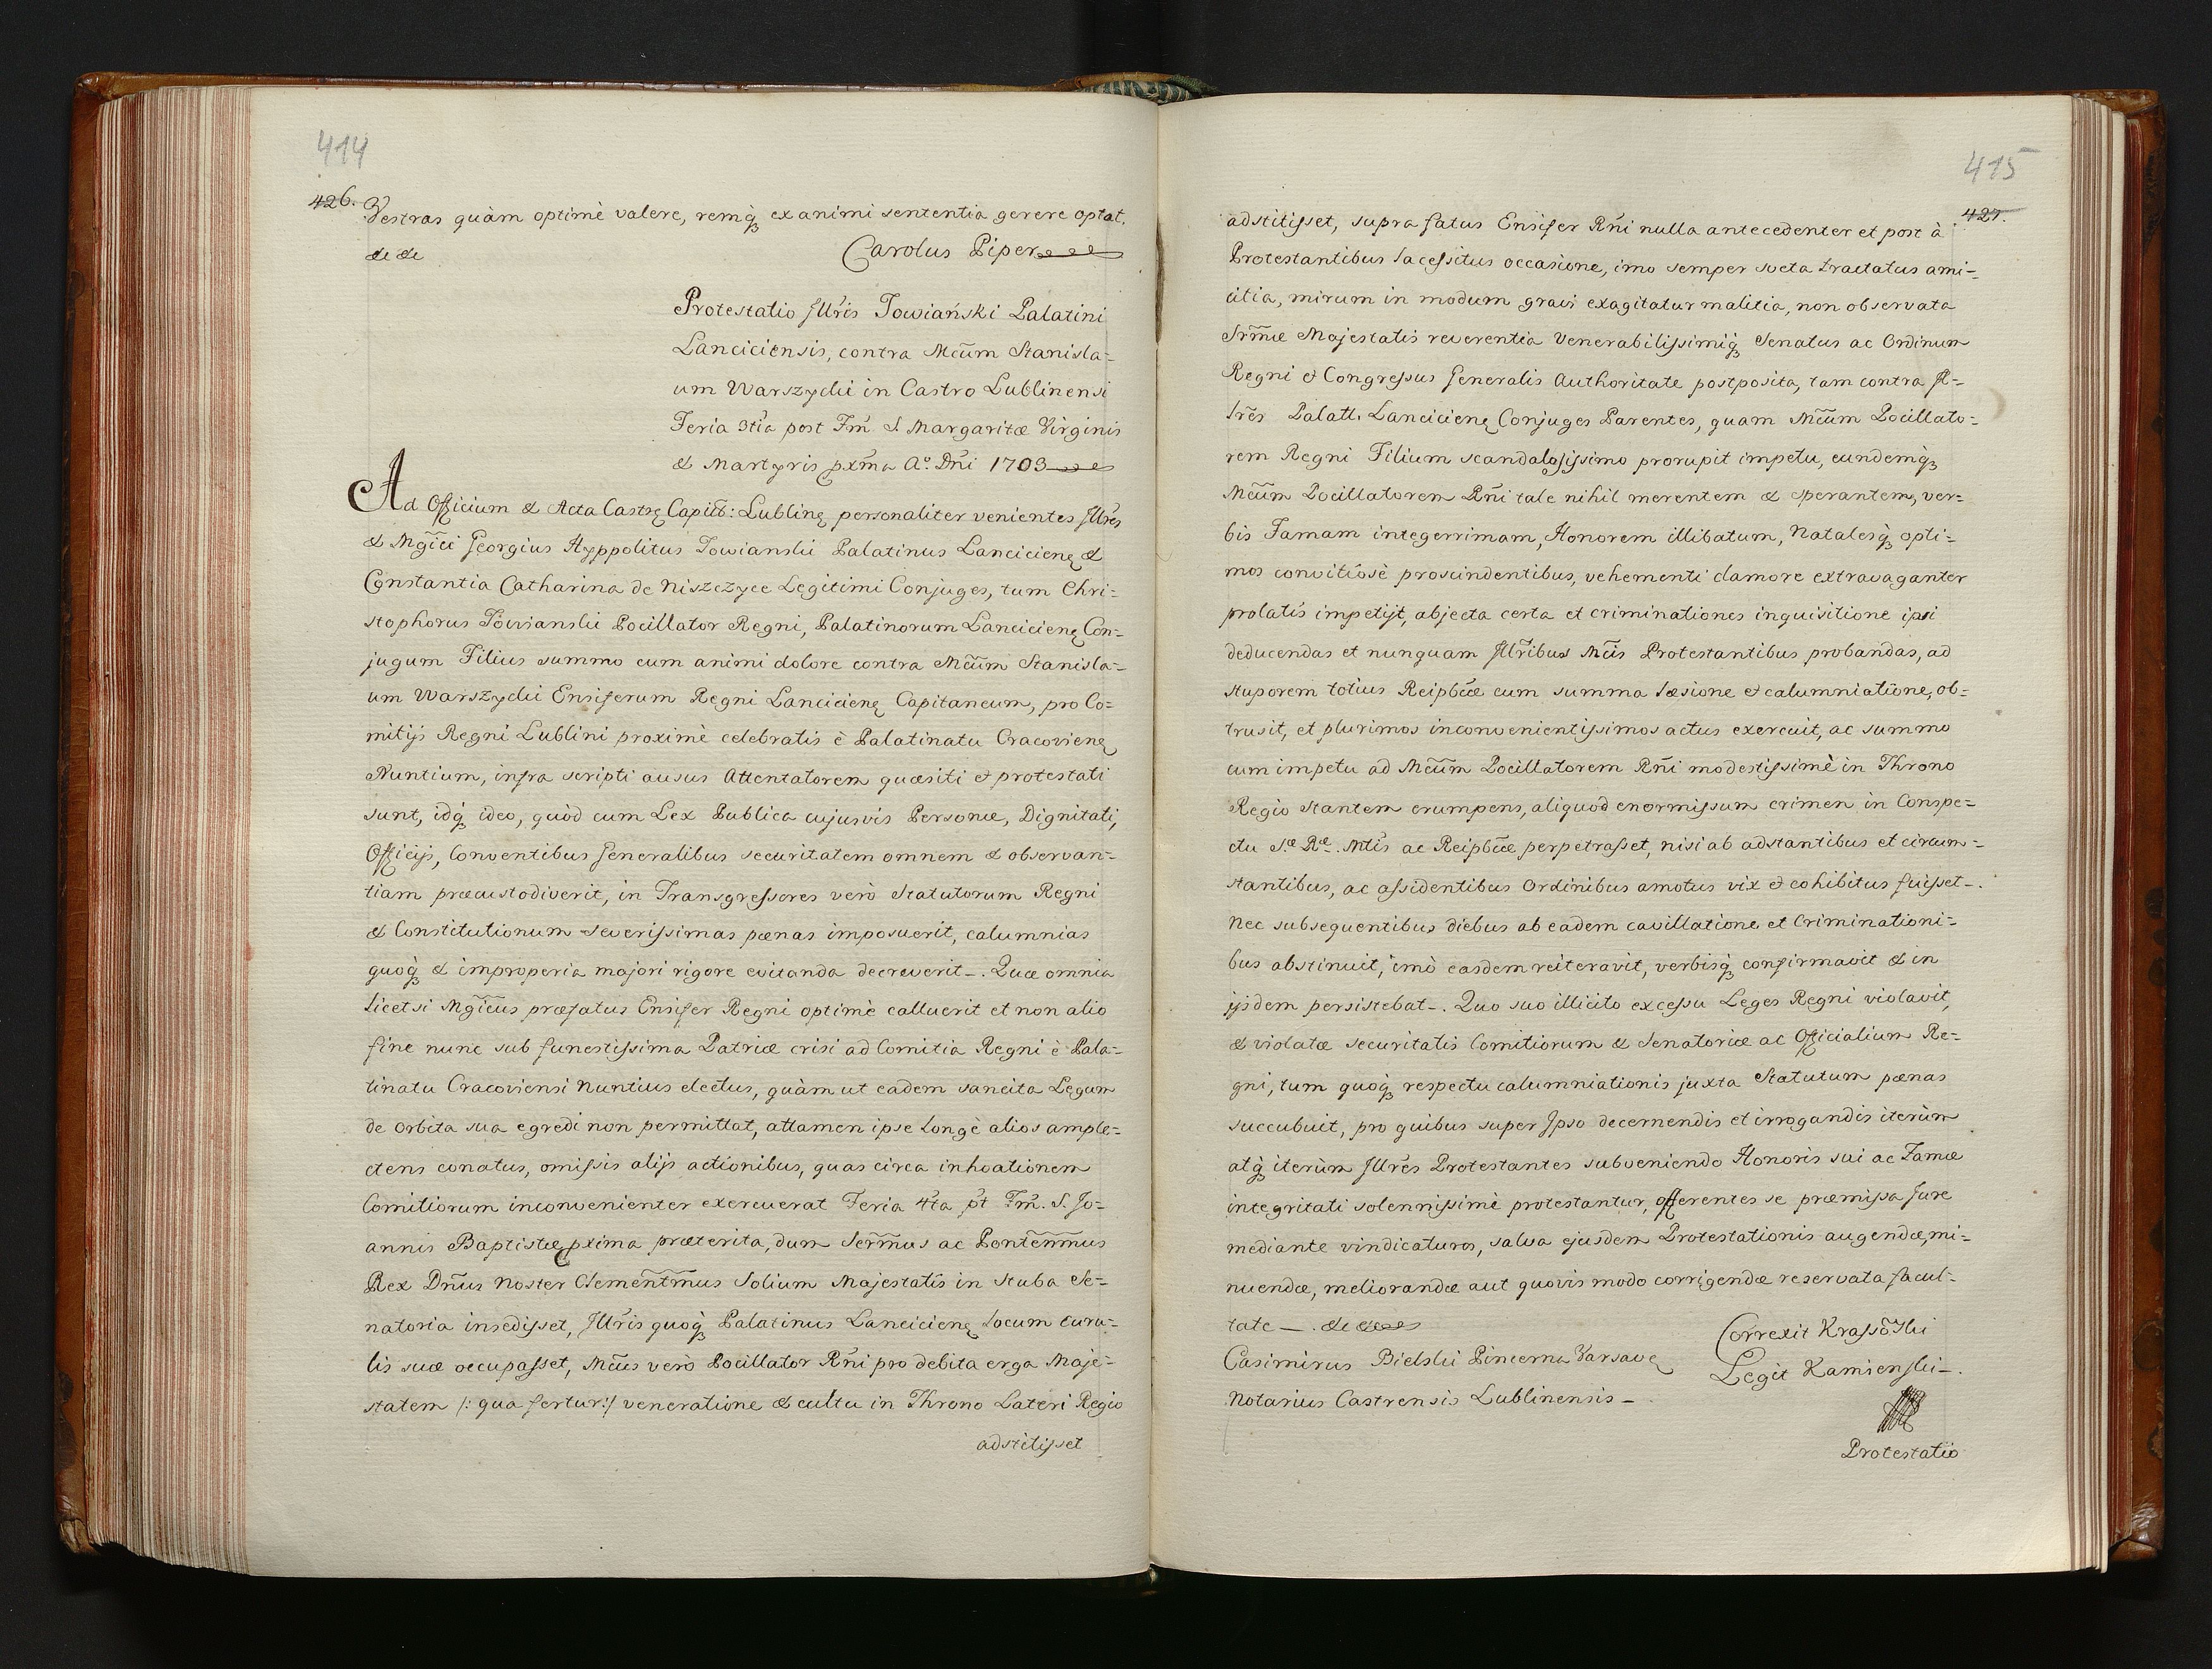 414
426.
Vestras quàm optimè valere, remq̀ꝫ ex animi sententia gerere optat.
&c &c
Carolus Piper
Protestatio Jllrĩs Towiański Palatini
Lanciciensis, contra Mcũm Stanisla=
um Warszycki in Castro Lublinensi
Feria 3tĩa post Fm̃ S. Margaritæ Virginis
& Martyris pxm̃a Aº. Dñi 1703
Ad Officium & Acta Castrę Capitl̃: Lublinę personaliter venientes Jllrẽs
& Mgĩci Georgius Hyppolitus Towianski Palatinus Lancicienę &
Constantia Catharina de Niszczyce Legitimi Conjuges, tum Chri=
stophorus Towianski Pocillator Regni, Palatinorum Lancicienę Con=
jugum Filius summo cum animi dolore contra Mcũm Stanisla=
um Warszycki Ensiferum Regni Lancicienę Capitaneum, pro Co=
mitijs Regni Lublini proximè celebratis è Palatinatu Cracovienę
Nuntium, infra scripti ausus Attentatorem quæsiti & protestati
sunt, idq̀ ideo, quòd cum Lex Publica cujusvis Personæ, Dignitati,
Officijs, Conventibus Generalibus securitatem omnem & observan=
tiam præcustodiverit, in Transgressores verò Statutorum Regni
& Constitutionum severissimas pœnas imposuerit, calumnias
quoq̀ꝫ & improperia majori rigore evitanda decreverit. Quæ omnia
licetsi Mgĩcus præfatus Ensifer Regni optimè calluerit et non alio
fine nunc sub funestissima Patriæ crisi ad Comitia Regni è Pala=
tinatu Cracoviensi Nuntius electus, quàm ut eadem sancita Legum
de orbita sua egredi non permittat, attamen ipse longè alios ample=
ctens conatus, omissis alijs actionibus, quas circa inhoationem
Comitiorum inconvenienter exercuerat Feria 4ta pt̃ Fm̃. S. Jo=
annis Baptistæ pxima præterita, dum Serm̃us ac Potentm̃mus
Rex Dnũs Noster Clementm̃us Solium Majestatis in Stuba Se=
natoria insedisset, Jllrĩs quoq̀ꝫ Palatinus Lancicienę locum curu=
lis suæ occupasset, Mcũs verò Pocillator Rñi pro debita erga Maje=
statem /: qua fertur:/ veneratione & cultu in Throno Lateri Regio
adstitisset
415
427.
adstitisset, supra fatus Ensifer Rñi nulla antecedenter et post à
Protestantibus lacessitus occasione, imo semper socta tractatus ami=
citia, mirum in modum gravi exagitatur malitia, non observata
Srm̃æ Majestatis reverentia Venerabilissimiq̀ꝫ Senatus ac Ordinum
Regni & Congressus Generalis Authoritate postposita, tam contra Jl=
lrẽs Palatt. Lancicienę Conjuges Parentes, quam Mcũm Pocillato=
rem Regni Filium scandalosissimo prorupit impetu, eundemq̀ꝫ
Mcũm Pocillatorem Rñi tale nihil merentem & sperantem, ver=
bis Famam integerrimam, Honorem illibatum, Natalesq̀ꝫ opti=
mos convitiosè proscindentibus, vehementi clamore extravaganter
prolatis impetijt, abjecta certa et criminationes inquisitione ipsi
deducendas et nunquam Jllrĩbus Mcĩs Protestantibus probandas, ad
stuporem totius Reipblc̃æ cum summa læsione & calumniatione, ob=
trusit, et plurimos inconvenientissimos actus exercuit, ac summo
cum impetu ad Mcũm Pocillatorem Rñi modestissimè in Throno
Regio stantem erumpens, aliquod enormissum crimen in Conspe=
ctu S.æ R.æ Mtĩs ac Reipblc̃æ perpetrasset, nisi ab adstantibus et circum=
stantibus, ac assidentibus Ordinibus amotus vix & cohibitus fuisset.
Nec subsequentibus diebus ab eadem cavillatione et Criminationi=
bus abstinuit, imò easdem reiteravit, verbisq̀ꝫ confirmavit & in
ijsdem persistebat. Quo suo illicito excessu Leges Regni violavit,
& violatæ securitatis Comitiorum & Senatoriæ ac Officialium Re=
gni, tum quoq̀ꝫ respectu calumniationis juxta Statutum pœnas
succubuit, pro quibus super Jpso decernendis et irrogandis iterùm
atq̀ꝫ iterùm Jllrẽs Protestantes subveniendo Honoris sui ac Famæ
integritati solennissimè protestantur, offerentes se præmissa Jure
mediante vindicaturos, salva ejusdem Protestationis augendæ, mi=
nuendæ, meliorandæ aut quovis modo corrigendæ reservata facul=
tate. &c &c
Casimirus Bielski Pincerna Varsavę
Notarius Castrensis Lublinensis
Correxit Krassõski
Legit Kamienski.
Protestatio